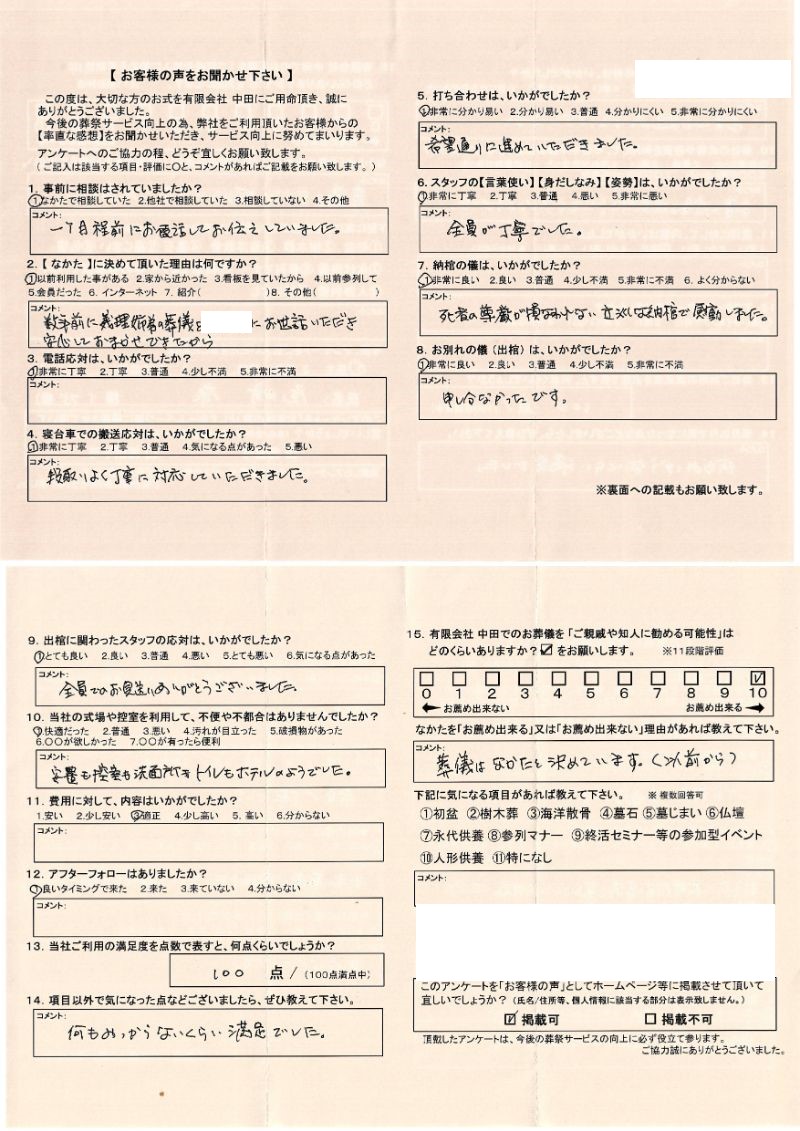 【 お客様の声をお聞かせ下さい 】
この度は、大切な方のお式を有限会社 中田にご用命頂き、誠に
ありがとうございました。
今後の葬祭サービス向上の為、弊社をご利用頂いたお客様からの
【率直な感想】をお聞かせいただき、サービス向上に努めてまいります。
アンケートへのご協力の程、どうぞ宜しくお願い致します。
(ご記入は該当する項目・評価に〇と、コメントがあればご記載をお願い致します。)
1. 事前に相談はされていましたか?
1.なかたで相談していた 2.他社で相談していた 3.相談していない 4.その他
コメント:
一ヶ月程前にお電話してお伝えしていました。
2.【 なかた 】に決めて頂いた理由は何ですか?
1.以前利用した事がある 2.家から近かった 3.看板を見ていたから 4.以前参列して
5.会員だった 6. インターネット 7. 紹介( )8. その他( )
コメント:
数年前に義理 の葬儀を にお世話いただき
安心しておまかせできたから
3. 電話応対は、いかがでしたか?
1.非常に丁寧 2.丁寧 3.普通 4.少し不満 5.非常に不満
コメント:
4. 寝台車での搬送応対は、いかがでしたか?
1.非常に丁寧 2.丁寧 3.普通 4.気になる点があった 5.悪い
コメント:
段取りよく丁寧に対応していただきました。
5. 打ち合わせは、いかがでしたか?
1.非常に分かり易い 2.分かり易い 3.普通 4.分かりにくい 5.非常に分かりにくい
コメント:
希望通りに進めていただきました。
6. スタッフの【言葉使い】【身だしなみ】【姿勢】は、いかがでしたか?
1.非常に丁寧 2.丁寧 3.普通 4.悪い 5.非常に悪い
コメント:
全員が丁寧でした。
7. 納棺の儀は、いかがでしたか?
1.非常に良い 2.良い 3.普通 4.少し不満 5.非常に不満 6. よく分からない
コメント:
死者の尊厳が損なわれない立派な納棺で感動しました。
8. お別れの儀(出棺)は、いかがでしたか?
1.非常に良い 2.良い 3.普通 4.少し不満 5.非常に不満
コメント:
申し分なかったです。
※裏面への記載もお願い致します。
9. 出棺に関わったスタッフの応対は、いかがでしたか?
1.とても良い 2.良い 3.普通 4.悪い 5.とても悪い 6.気になる点があった
コメント:
全員でのお見送りありがとうございました。
10. 当社の式場や控室を利用して、不便や不都合はありませんでしたか?
1.快適だった 2.普通 3.悪い 4.汚れが目立った 5.破損物があった
6.〇〇が欲しかった 7.〇〇が有ったら便利
コメント:
安置も控室も洗面所もトイレもホテルのようでした。
11. 費用に対して、内容はいかがでしたか?
1.安い 2.少し安い 3.適正 4.少し高い 5. 高い 6.分からない
コメント:
12. アフターフォローはありましたか?
1.良いタイミングで来た 2.来た 3.来ていない 4.分からない
コメント:
13. 当社ご利用の満足度を点数で表すと、何点くらいでしょうか?
100 点/(100点満点中)
14. 項目以外で気になった点などございましたら、ぜひ教えて下さい。
コメント:
何もみつからないくらい満足でした。
15. 有限会社 中田でのお葬儀を「ご親戚や知人に勧める可能性」は
どのくらいありますか?☑をお願いします。 ※11段階評価
0 1 2 3 4 5 6 7 8 9 10
← お薦め出来ない お薦め出来る →
なかたを「お薦め出来る」又は「お薦め出来ない」理由があれば教えて下さい。
コメント:
葬儀はなかたと決めています。(以前から)
下記に気になる項目があれば教えて下さい。 ※ 複数回答可
①初盆 ②樹木葬 ③海洋散骨 ④墓石 ⑤墓じまい ⑥仏壇
⑦永代供養 ⑧参列マナー ⑨終活セミナー等の参加型イベント
⑩人形供養 ⑪特になし
コメント:
このアンケートを「お客様の声」としてホームページ等に掲載させて頂いて
宜しいでしょうか?(氏名/住所等、個人情報に該当する部分は表示致しません。)
☑ 掲載可 □ 掲載不可
頂戴したアンケートは、今後の葬祭サービスの向上に必ず役立て参ります。
ご協力誠にありがとうございました。